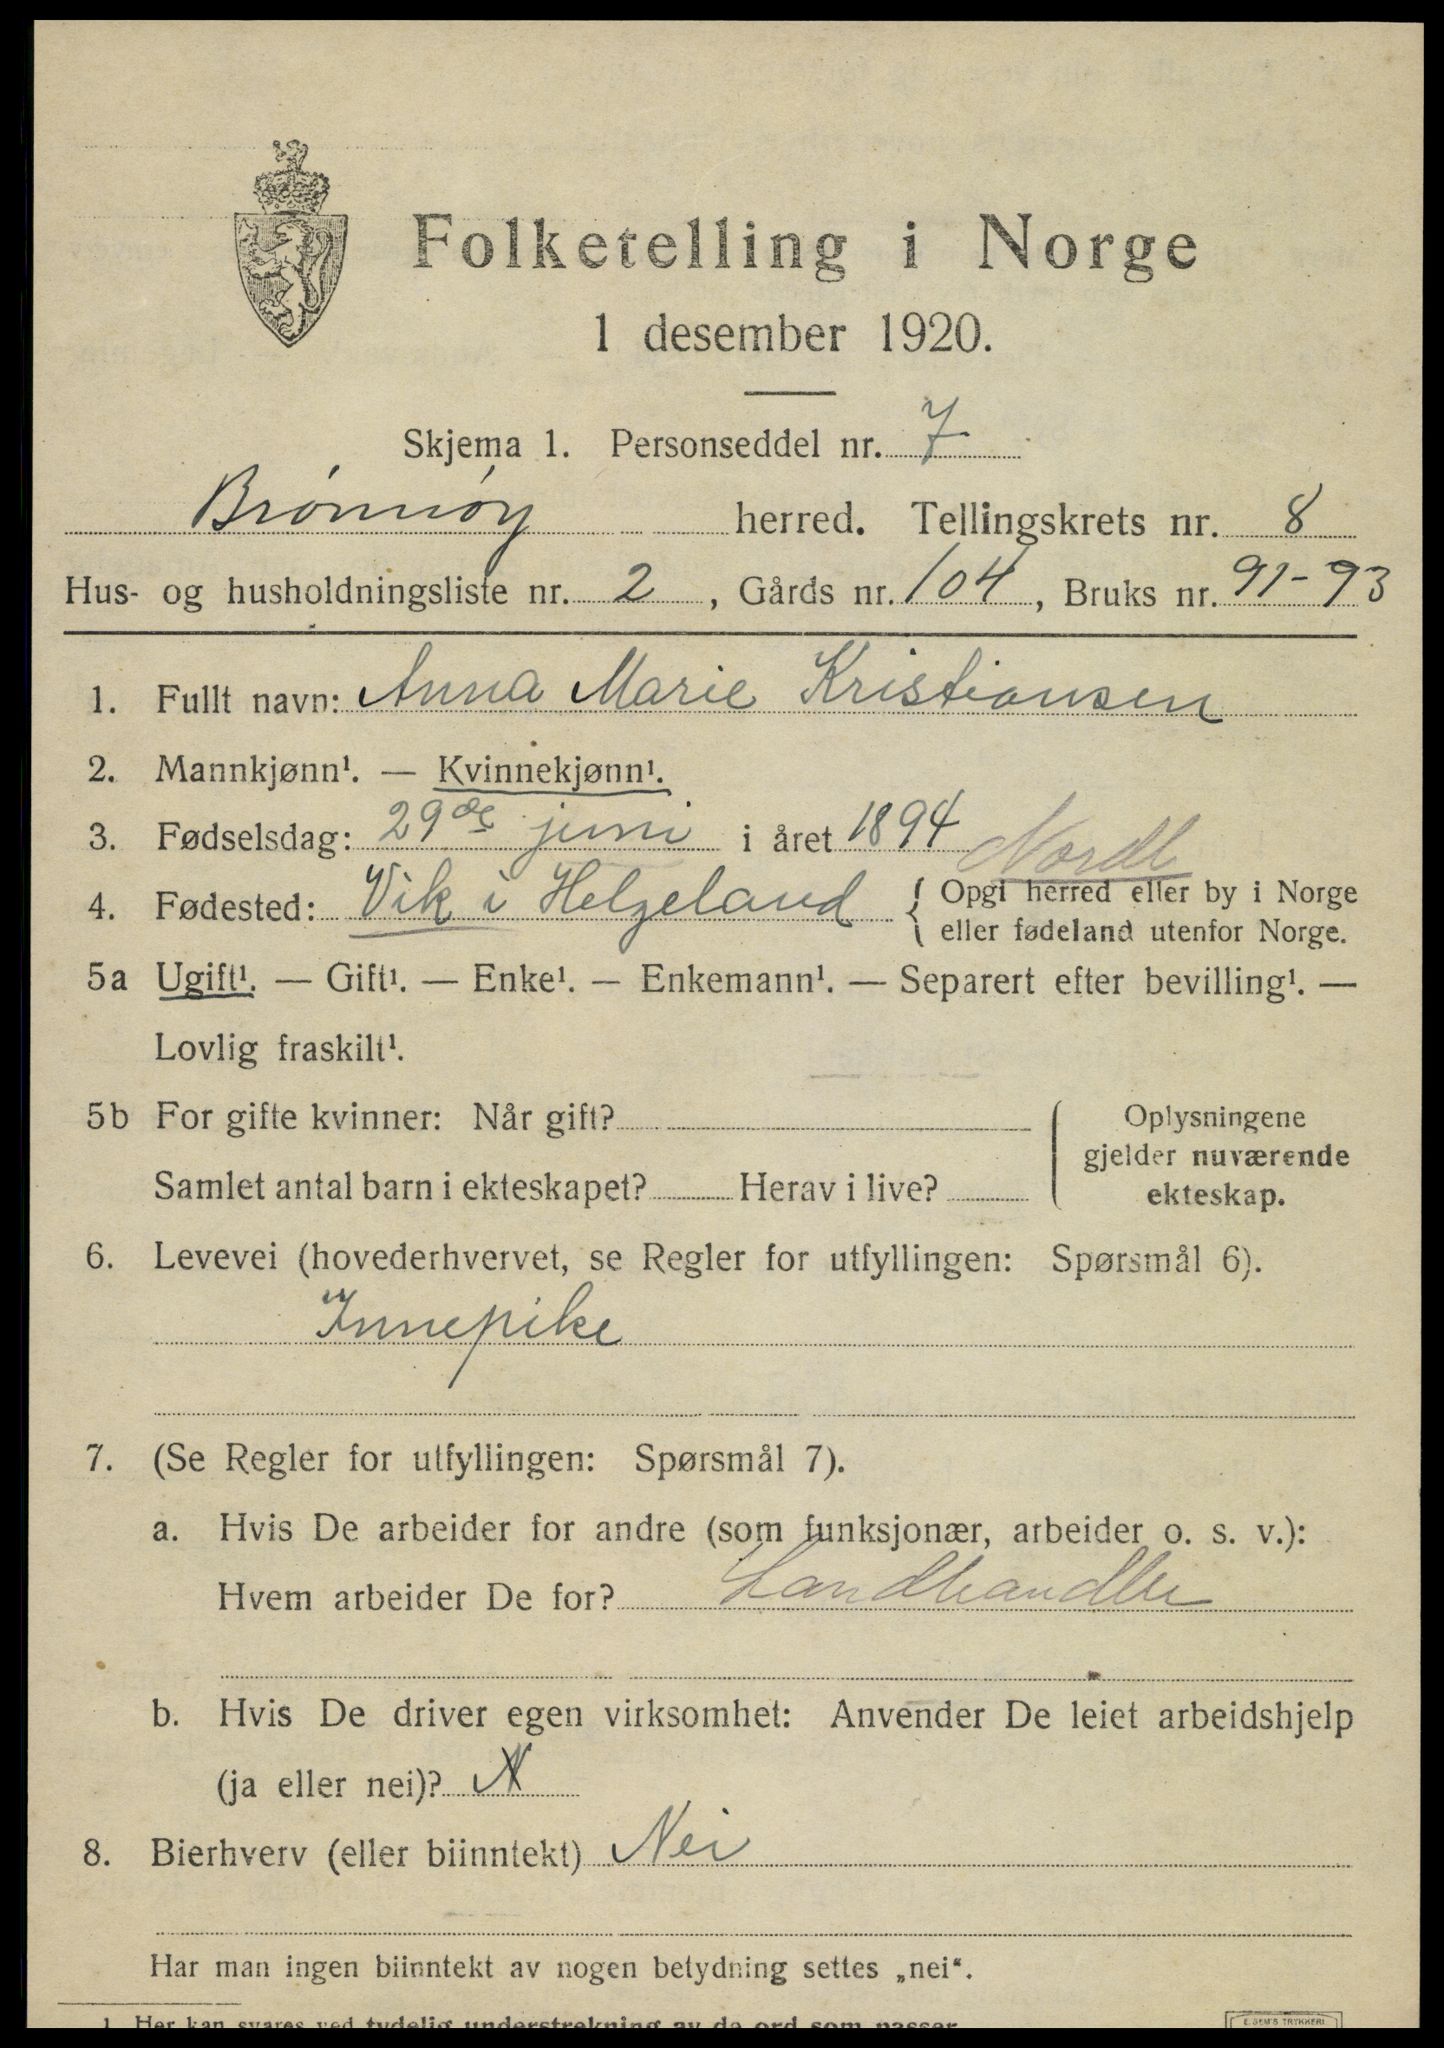 Folketelling i Norge
1 desember 1920.
Skjema 1. Personseddel nr. 7
Brønnøy herred. Tellingskrets nr. 8
Hus- og husholdningsliste nr. 2, Gårds nr. 104, Bruks nr. 91-93
1. Fullt navn: Anna Marie Kristiansen
2. Mannkjønn¹. — Kvinnekjønn¹.
3. Fødselsdag: 29de juni i året 1894
Nordl
4. Fødested: Vik i Helgeland { Opgi herred eller by i Norge
eller fødeland utenfor Norge.
5a Ugift¹. — Gift¹. — Enke¹. — Enkemann¹. — Separert efter bevilling¹. —
Lovlig fraskilt¹.
5b For gifte kvinner: Når gift?
Samlet antal barn i ekteskapet? Herav i live?
Oplysningene
gjelder nuværende
ekteskap.
6. Levevei (hovederhvervet, se Regler for utfyllingen: Spørsmål 6).
Innepike
7. (Se Regler for utfyllingen: Spørsmål 7).
a. Hvis De arbeider for andre (som funksjonær, arbeider o. s. v.):
Hvem arbeider De for? Landhandler
b. Hvis De driver egen virksomhet: Anvender De leiet arbeidshjelp
(ja eller nei)? N
8. Bierhverv (eller biinntekt) Nei
Har man ingen biinntekt av nogen betydning settes „nei“.
1 Her kan svares ved tydelig understrekning av de ord som passer.
E. SEM'S TRYKKERI